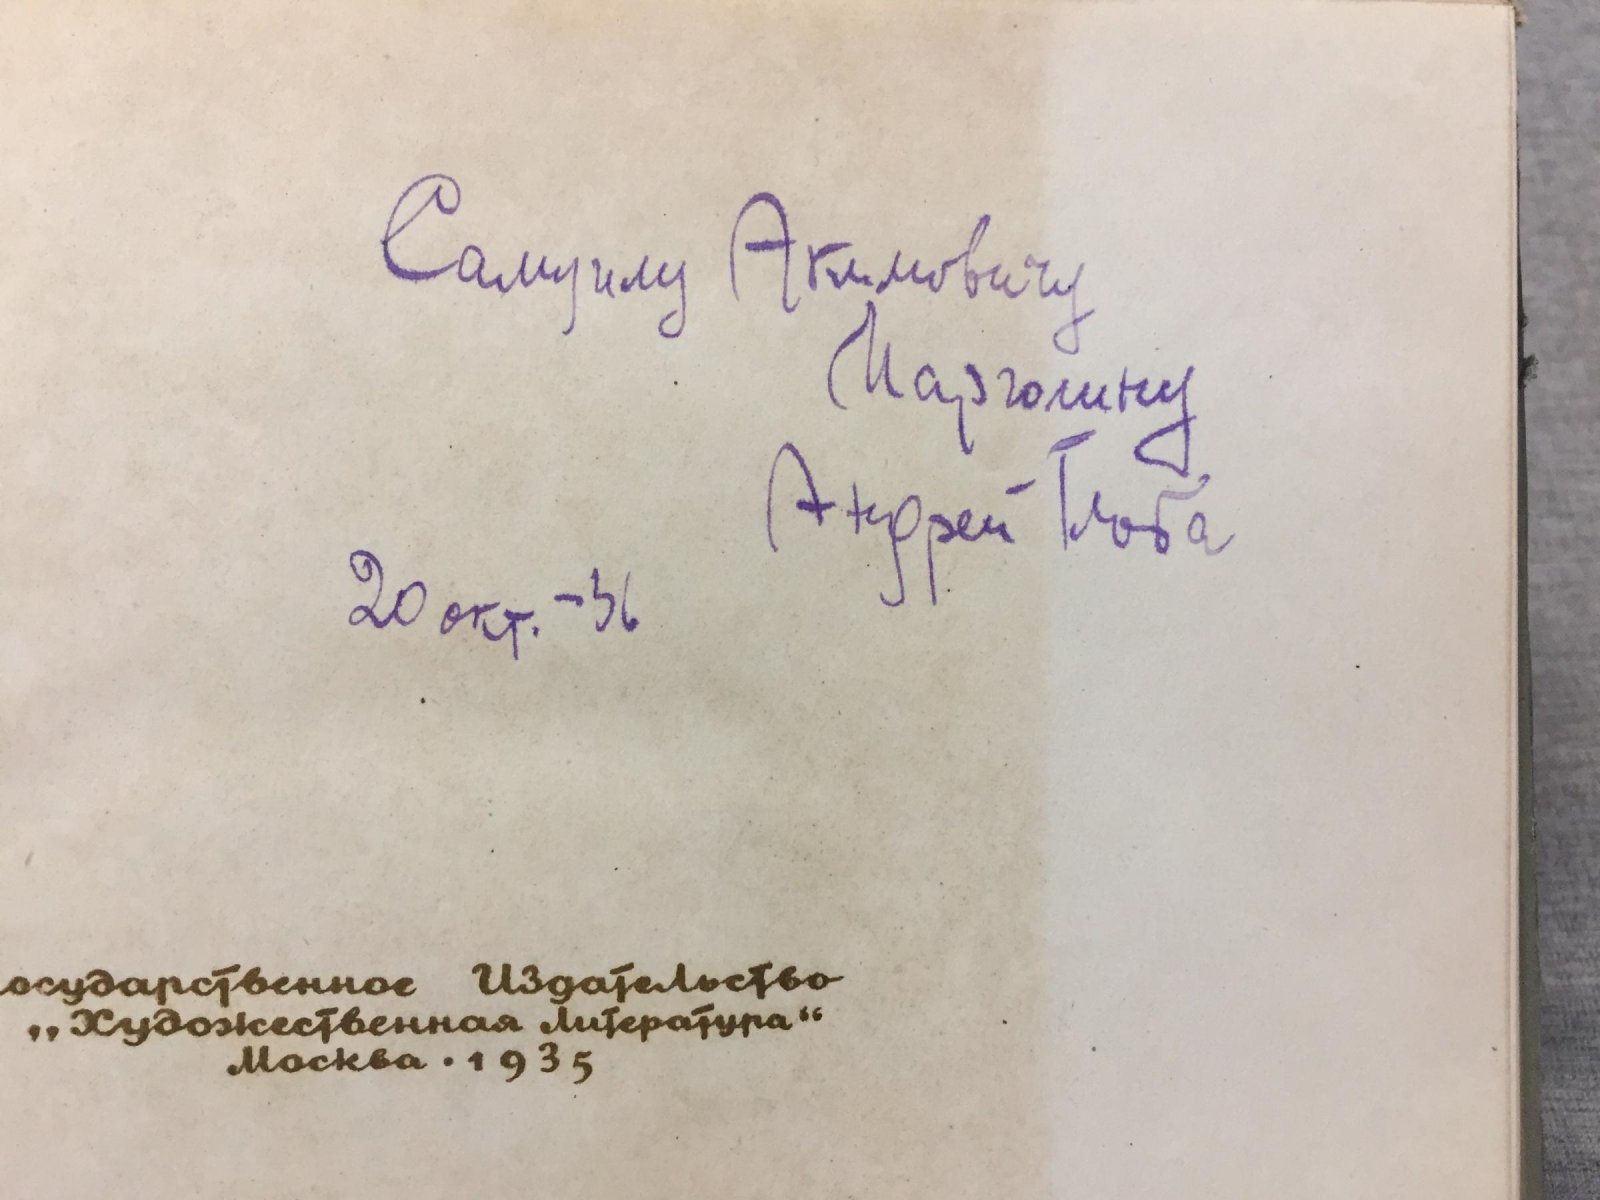 Самуилу Акимовичу
Марголину
Андрей Глоба
20 окт. -36
осударственное Издательство
„Художественная Литература“
Москва · 1935